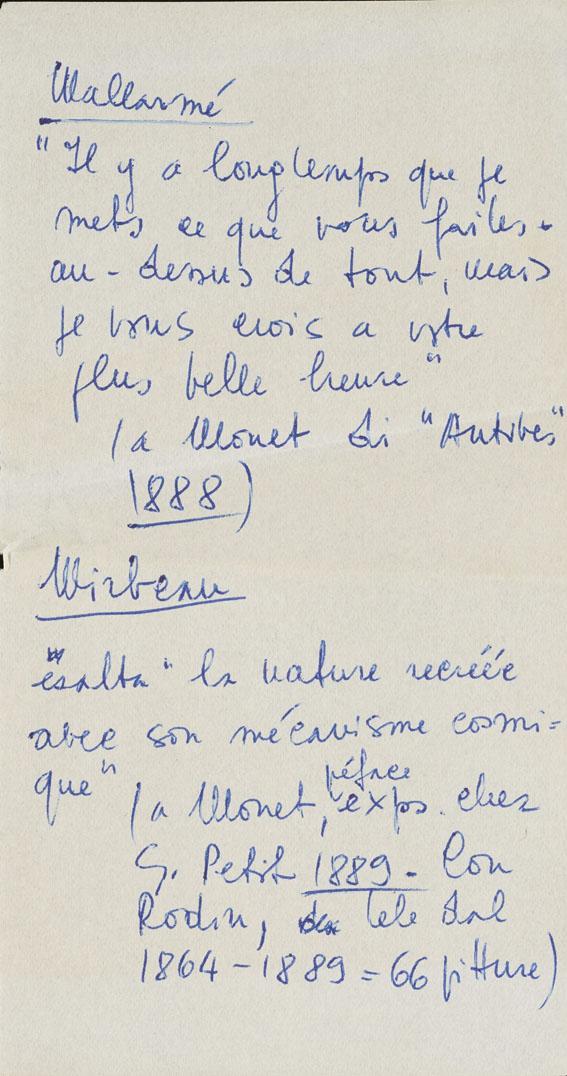 Mallarmé
"Il y a longtemps que je
mets ce que vous faites
au-dessus de tout, mais
je vous crois a votre
plus belle heure"
(a Monet di "Antibes"
1888)
Mirbeau
esalta "la nature recréée
avec son mécanisme cosmi=
que"
(a Monet, péface expos. chez
G. Petit 1889 - Con
Rodin, tele dal
1864-1889 = 66 pitture)